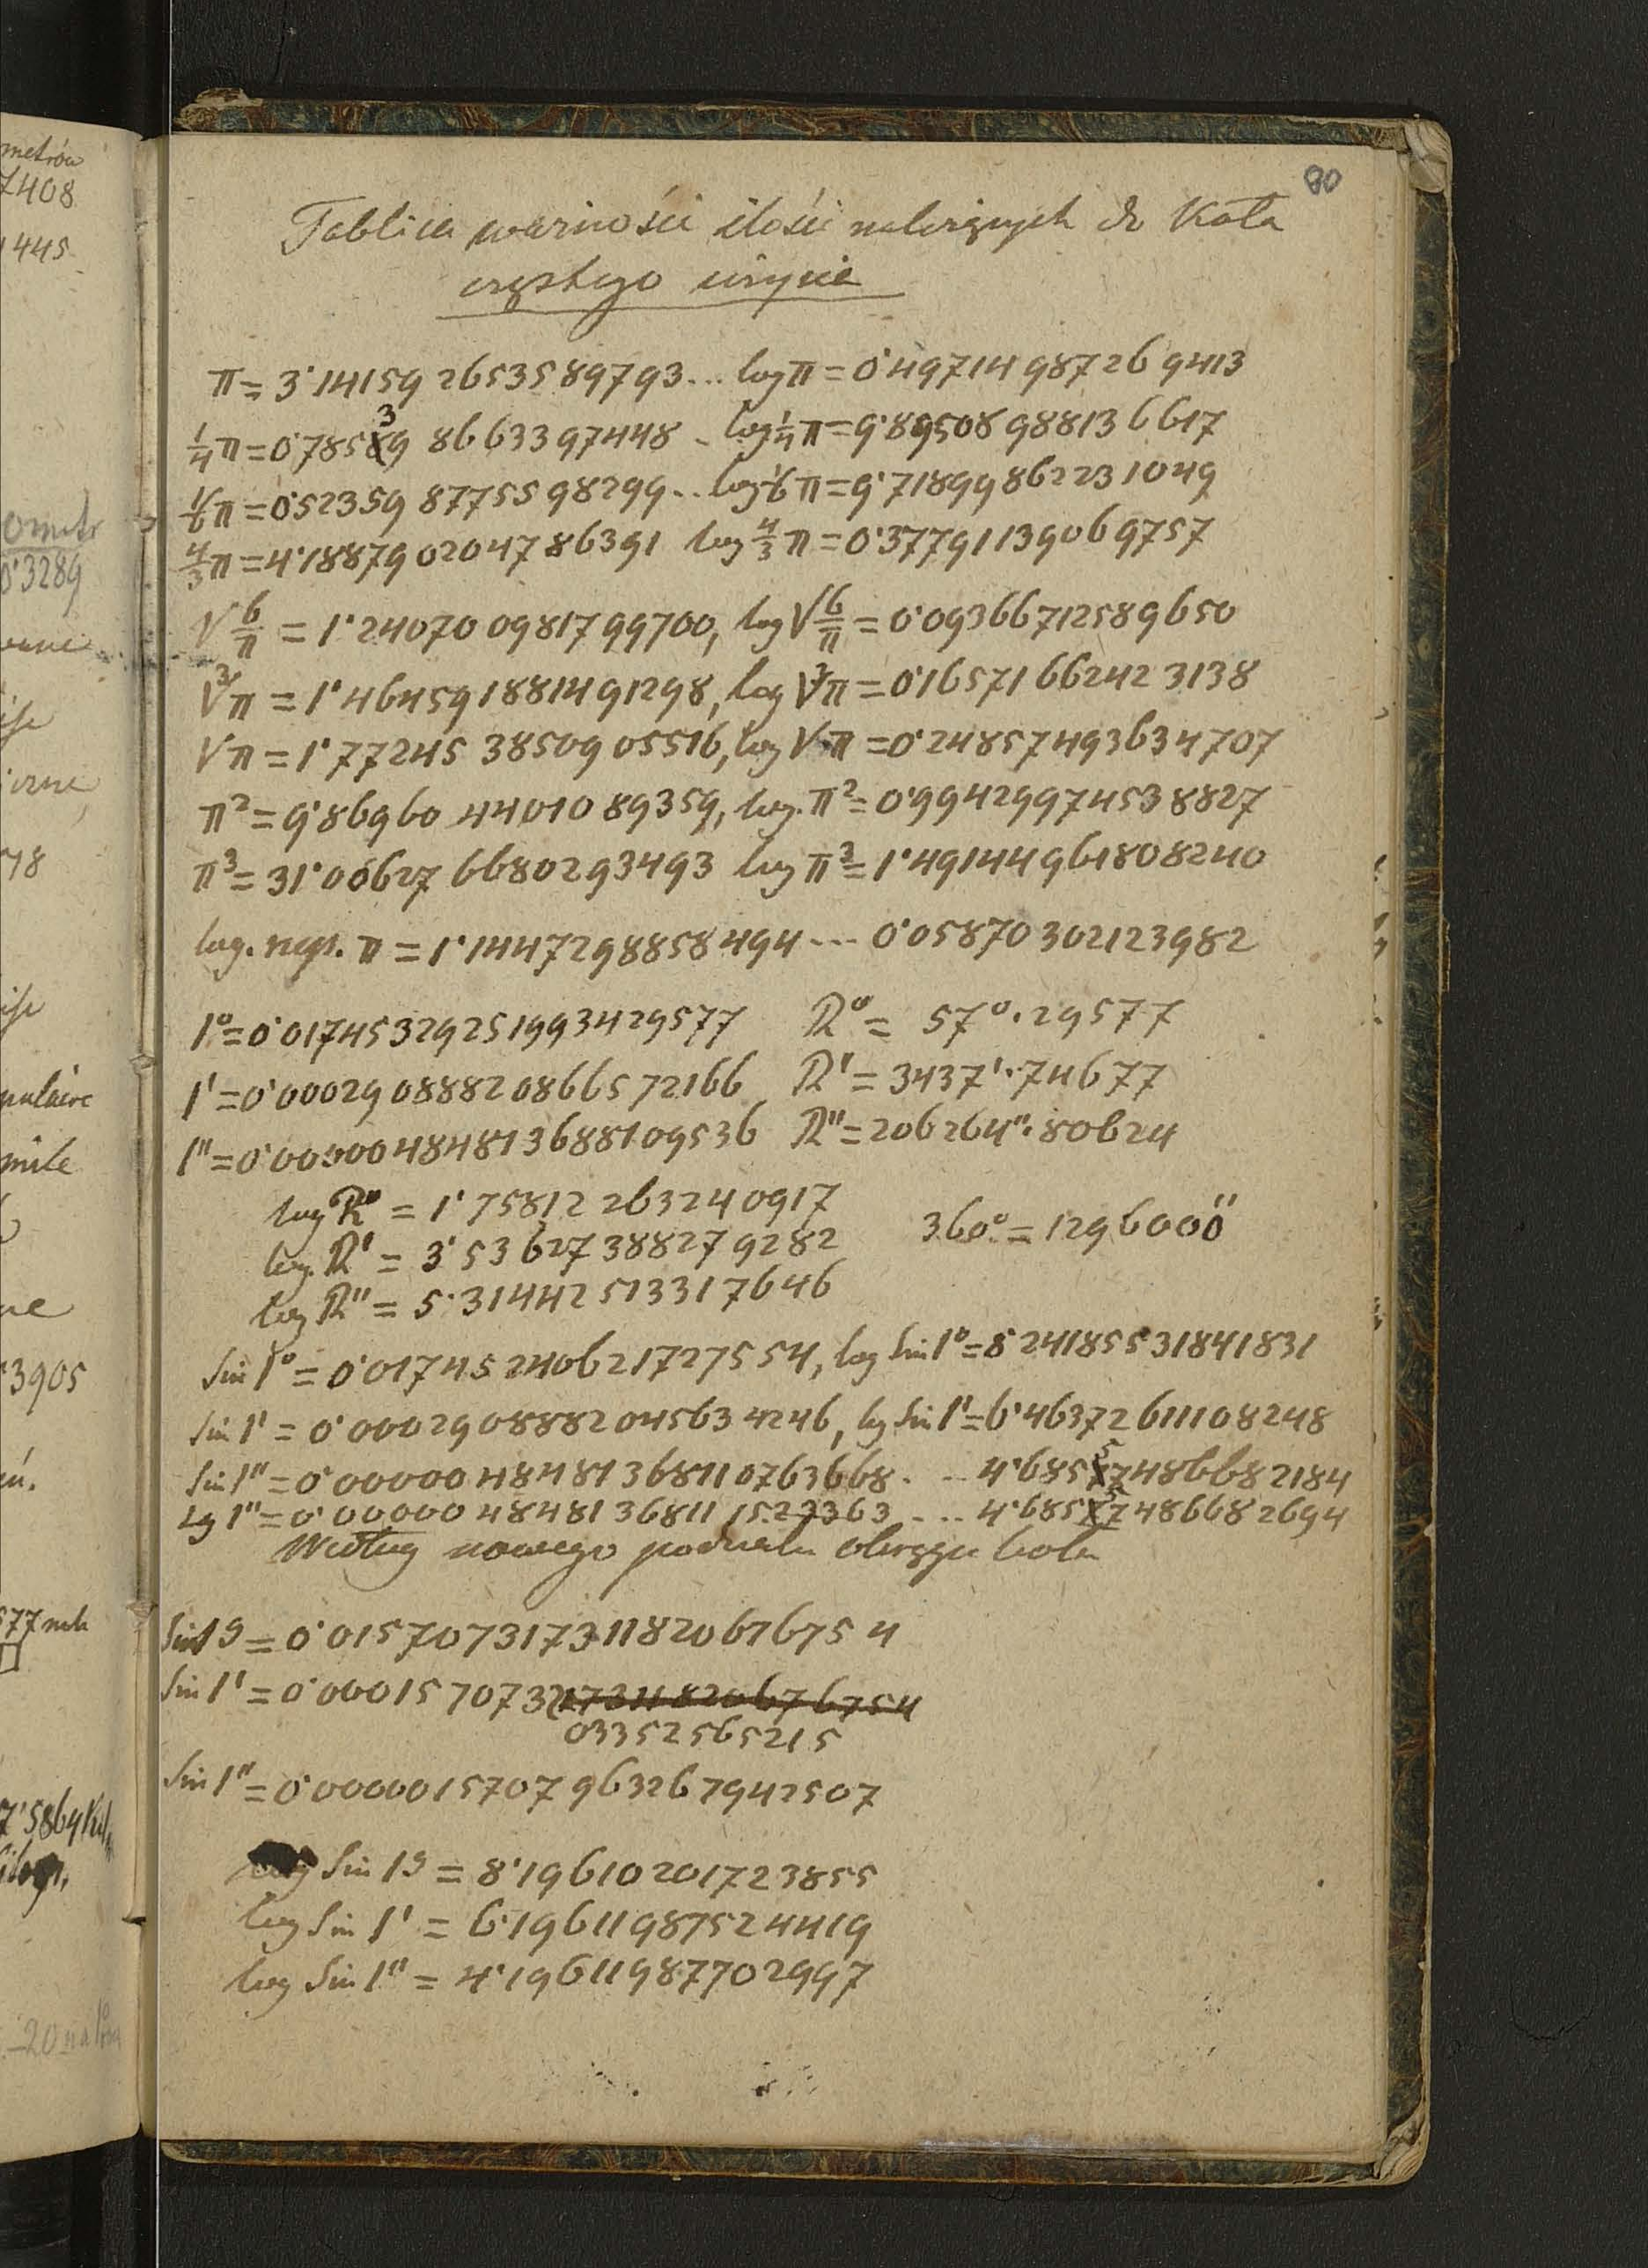 metrów
7408
1445
0 metr
0'3289
78
3905
577 mt
7'5864 Kil
80
Tablica warności ilości należących do Koła
częstego użycia
π = 3'14159 26535 89793... log π = 0'49714 98726 9413
¼π = 0'785 3 9 86633 97448 . log ¼π = 9'89508 98813 6617
⅙π = 0'52359 87755 98299... log ⅙π = 9'71899 86223 1049
4/3 π = 4'18879 02047 86391 log 4/3 π = 0'37791139069757
√6/π = 1'24070 09817 99700, log √6/π = 0'09366712589650
∛π = 1'46459 1881491298, log ∛π = 0'16571 66242 3138
√π = 1'77245 38509 05516, log √π = 0'24857493634707
π² = 9'86960 44010 89359, log. π² = 0'99429974538827
π³ = 31'00627 66802 93493 log π³ = 1'49144961808240
log. nep. π = 1'1447298858494 --- 0'05870302123982
1° = 0'01745329251993429577 R° = 57°'29577
1' = 0'00029088820866572166 R' = 3437''74677
1" = 0'00000484813688109536 R" = 206264"'80624
log R° = 1'75812 263240917
log. R' = 3'53627388279282 360° = 1296000"
log R" = 5'31442513317646
Sin 1° = 0'01745240621727554, log Sin 1° = 8'24185531841831
Sin 1' = 0'00029088882045634246, lg Sin 1' = 6'46372611108248
Sin 1" = 0'00000484813681107636 68. .. 4'685 5 7486682184
tg 1" = 0'00000 48481 36811 1527363 ... 4'685 5 7486682694
Według nowego podziału okręgu koła
Sin 1g = 0'01570731731182067675 4
Sin 1' = 0'00015707321731182067 6754
03352565215
Sin 1" = 0'0000015707 963267942507
log Sin 1g = 8'19610201723855
log Sin 1' = 6'19611987524419
log Sin 1" = 4'19611987702997